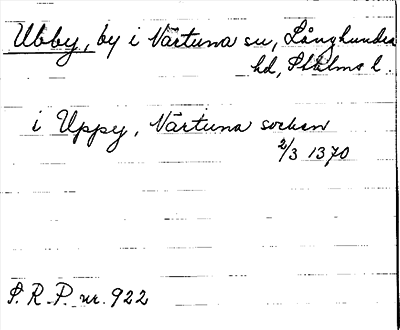 Ubby, by i Närtuna sn, Långhundra
hd, Sthlms l.
i Uppy, Närtuna socken
2/3 1370
S.R.P. nr. 922